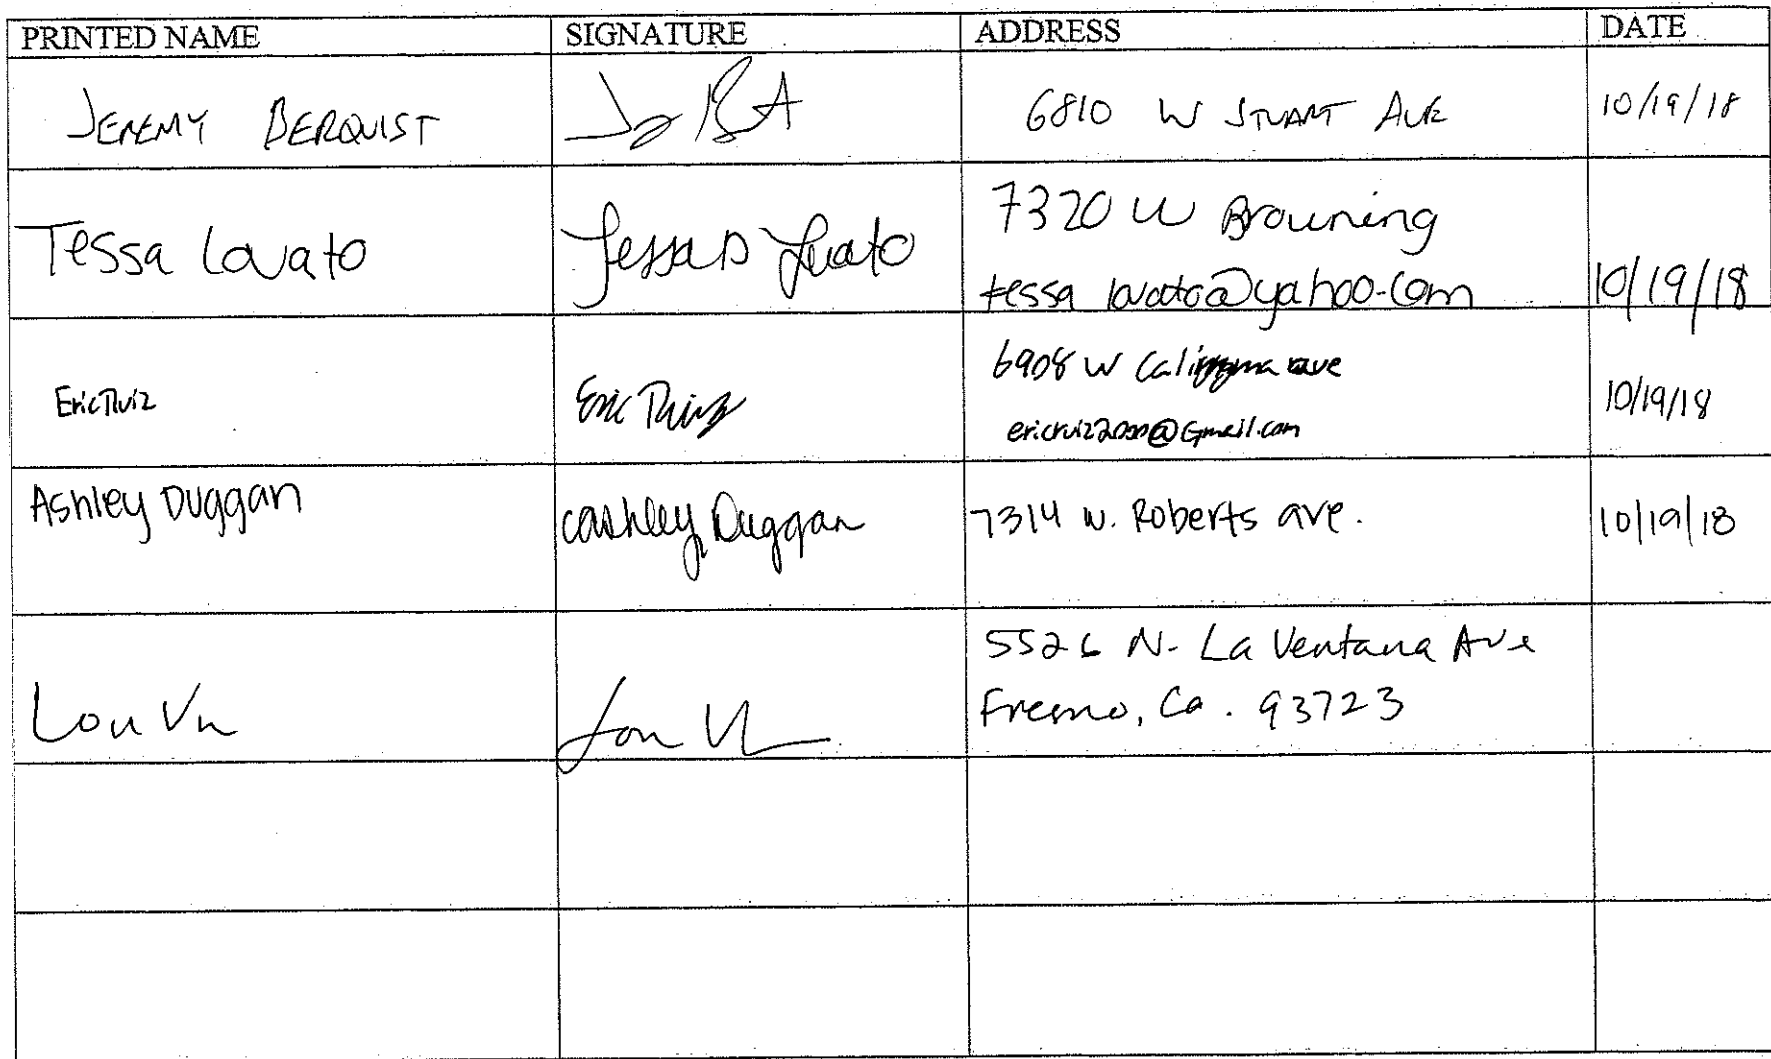 PRINTED NAME SIGNATURE ADDRESS DATE
JEREMY BERQUIST 6810 W STUART AVE 10/19/18
Tessa Lovato Tessa D Lovato 7320 W Browning
tessa lovato@yahoo.com 10/19/18
Eric Ruiz Eric Ruiz 6908 W ave 10/19/18
ericruiz2000@Gmail.com
Ashley Duggan Ashley Duggan 7314 W. Roberts ave. 10/19/18
5526 N. La Ventana Ave
Lou Vu Lou Vu Fresno, Ca. 93723